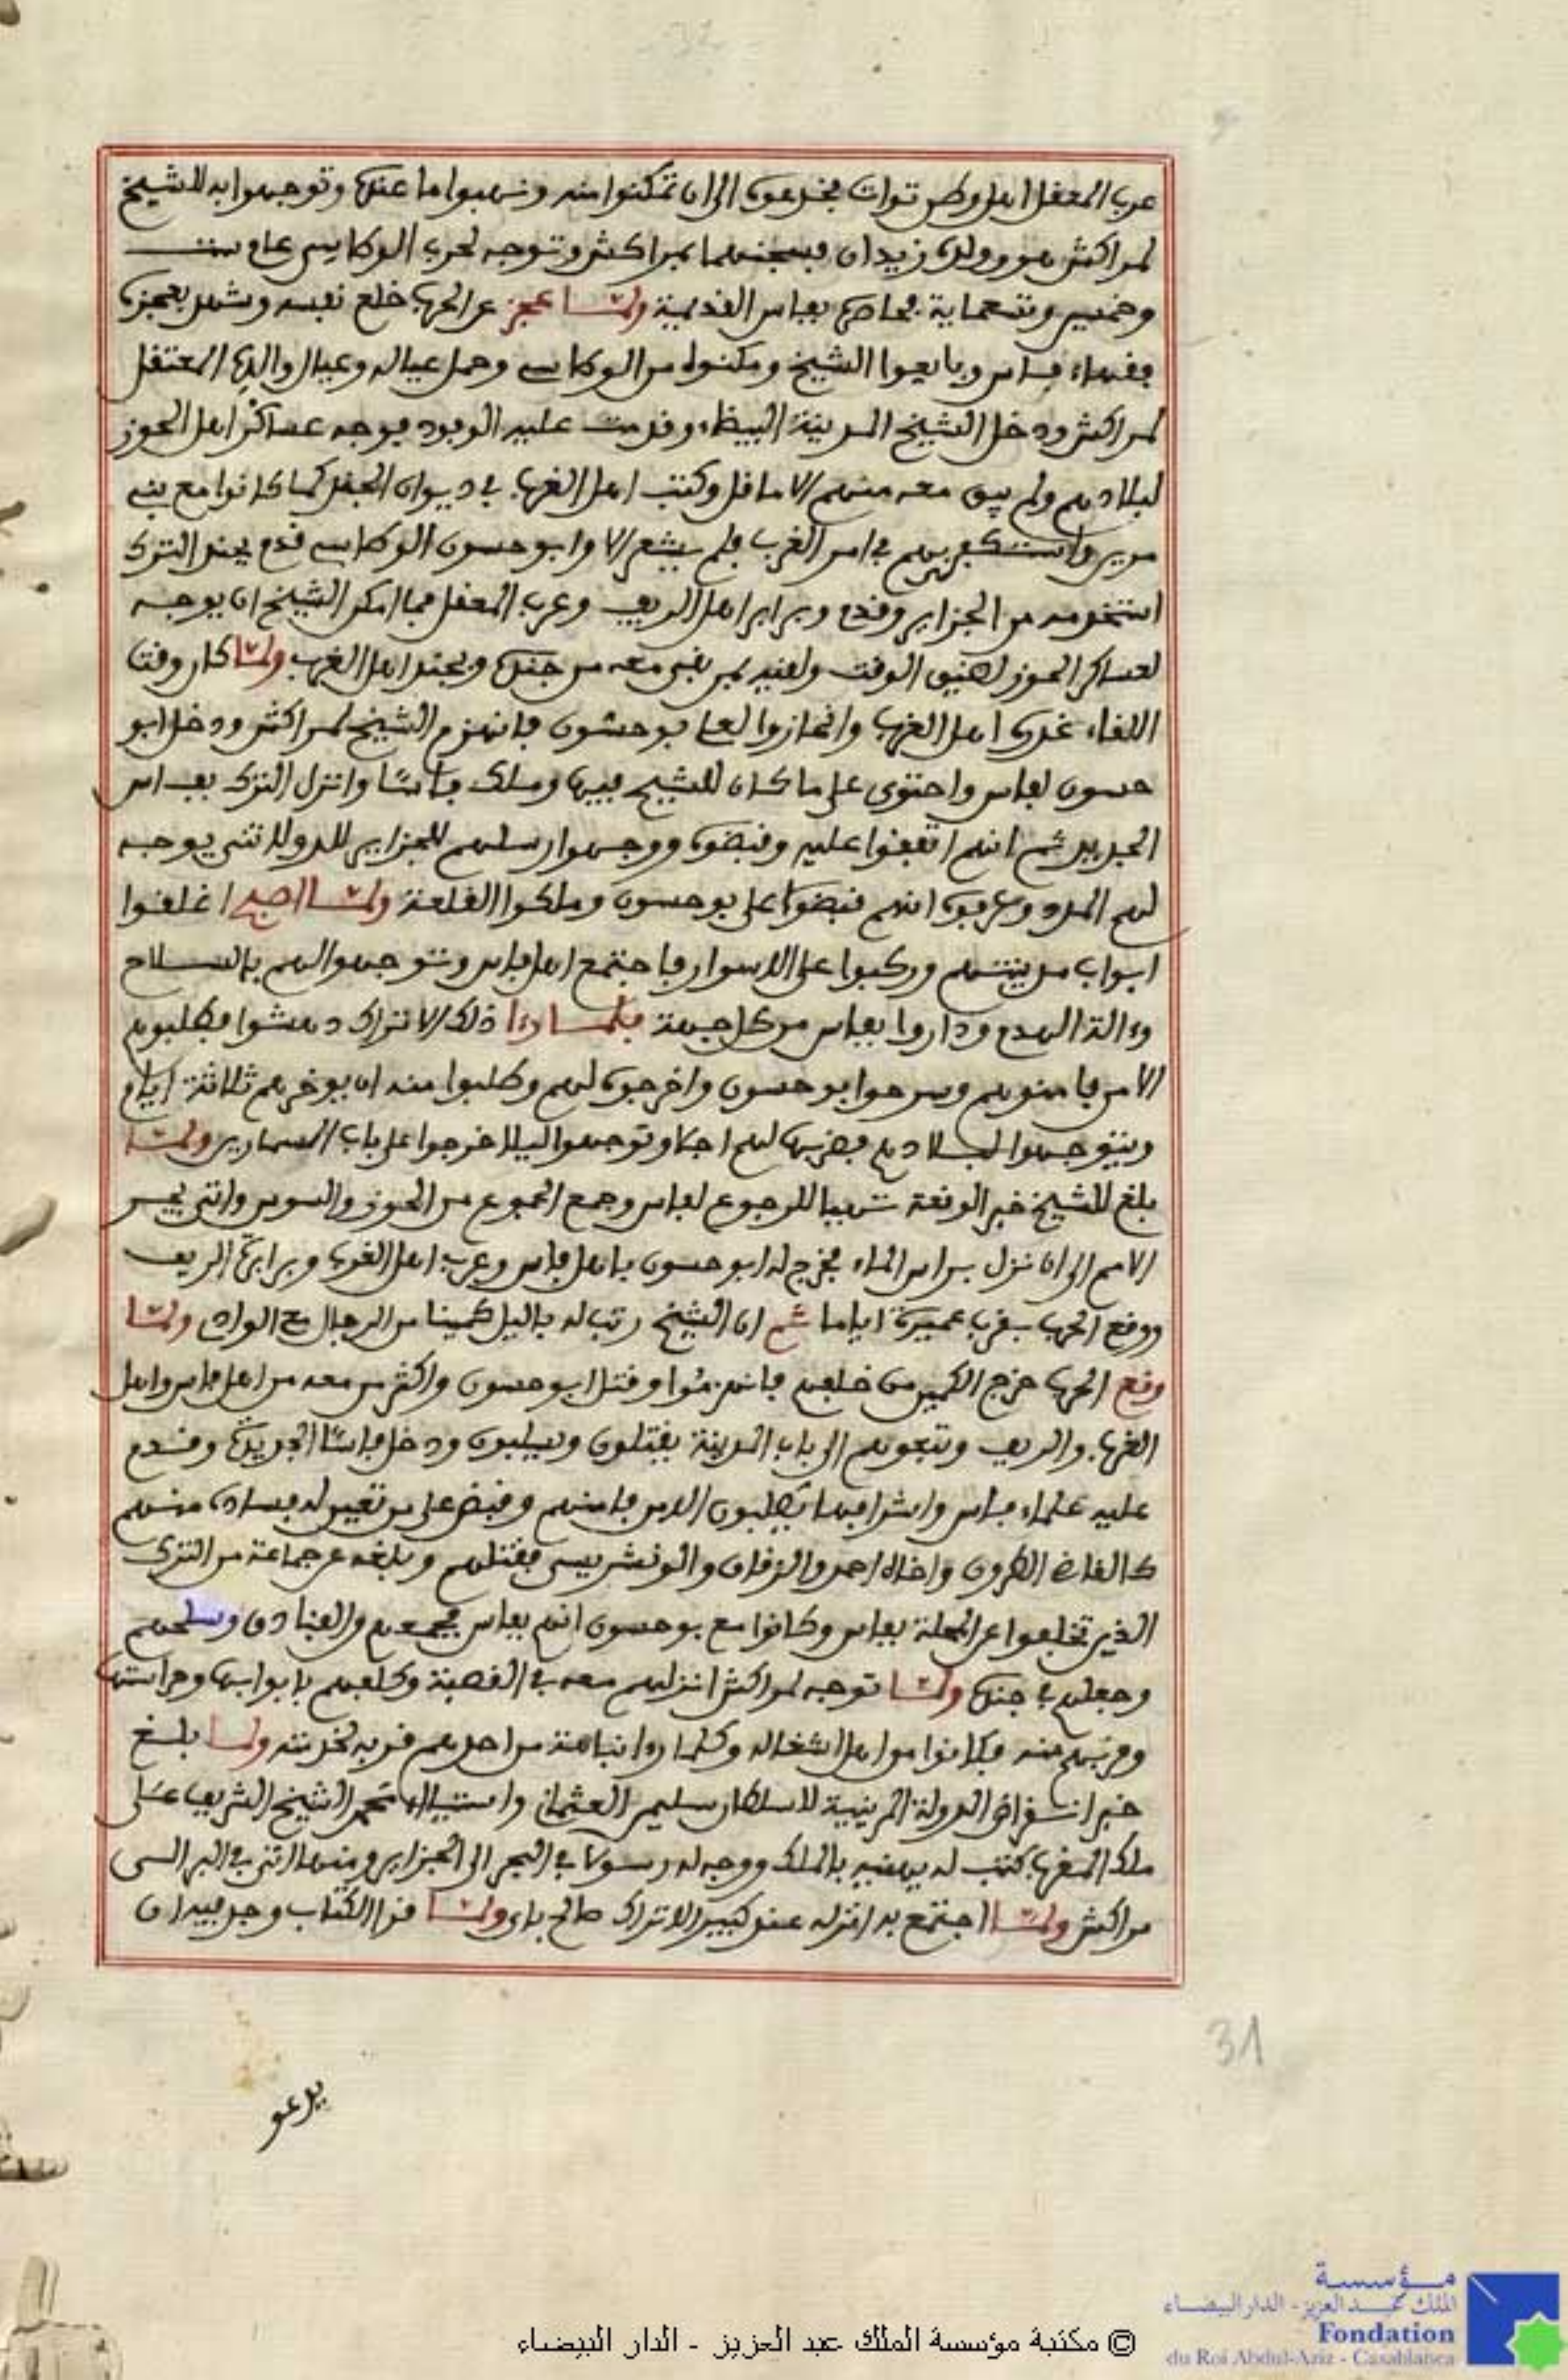 عرب المعفل اهل وطن توات فخدعوه الى ان تمكنوا منه ونهبوا ما عنده وتوجهوا به للشيخ
لمراكش هو وولده زيدان فسجنهما بمراكش وتوجه لحرب الوطاسي عام ست
وخمسين وتسعماية فحاصره بفاس القديمة ولما عجز عن الحرب خلع نفسه وشهد بعجزه
فقهاء فاس وبايعوا الشيخ ومكنوه من الوطاسي وحمل عياله وعيال والده المعتقل
لمراكش ودخل الشيخ المدينة البيضاء وقدمت عليه الوفود فوجه عساكر اهل الحوز
لبلادهم ولم يبق معه منهم الا ما قل وكتب اهل الغرب في ديوان الجند كما كانوا مع بني
مرين واستكفى بهم في امر الغرب فلم يشعر الا وابو حسون الوطاسي قدم بجند الترك
استخدمه من الجزاير وقدم وبرابر اهل الريف وعرب المعفل فما امكن الشيخ ان يوجه
لعساكر الحوز لضيق الوقت ولقيه بمن بقي معه من جنده وبجند اهل الغرب ولما كان وقت
اللقاء غدره اهل الغرب وانحازوا بوحسون فانهزم الشيخ لمراكش ودخل ابو
حسون لفاس واحتوى على ما كان للشيخ فيها وملك فاسا وانزل الترك بفاس
الجديد ثم انهم اتفقوا عليه وقبضوه ووجهوا رسلهم للجزاير للدولاتلي يوجه
لهم المدد وعرفوه انهم قبضوا على بوحسون وملكوا القلعة ولما اصبح اغلقوا
ابواب مدينتهم وركبوا على الاسوار فاجتمع اهل فاس وتوجهوا اليهم بالسلاح
وءالة الهدم وداروا بفاس من كل جهة فلما رءا ذلك الاتراك دهشوا فطلبوهم
الامن فامنوهم وسرحوا ابو حسون واخرجوه لهم وطلبوا منه ان يوخرهم ثلاثة ايام
ويتوجهوا لبلادهم فضرب لهم اجلا وتوجهوا ليلا خرجوا على باب السمارين ولما
بلغ للشيخ خبر الوقعة تهيا للرجوع لفاس وجمع الجموع من الحوز والسوس واتى بجر
الامم الى ان نزل براس الماء فخرج له ابو حسون باهل فاس وعرب اهل الغرب وبرابرة الريف
ووقع الحرب بقرب عميرة اياما ثم ان الشيخ رتب له باليل كمينا من الرجال مع الواد ولما
وقع الحرب خرج الكمين من خلفهم فانهزموا وقتل ابو حسون واكثر من معه من اهل فاس واهل
الغرب والريف وتبعوهم الى باب المدينة يقتلون ويسلبون ودخل فاسا الجديدة وقدم
عليه علماء فاس واشرافها يطلبون الامن فامنهم وقبض على من تعين له فساده منهم
كالقاضي الطرون واخاه احمد والزقاق والونشريسي فقتلهم وبلغه عن جماعة من الترك
الذين تخلفوا عن المحلة بفاس وكانوا مع بوحسون انهم بفاس فجمعهم والفنادق وسلحهم
وجعلهم في جنده ولما توجه لمراكش انزلهم معه في القصبة وكلفهم بابوابها وحراستها
وقربهم منه فكانوا من اهل اشغاله وكلما رءا نباهة من احدهم قربه لخدمته ولما بلغ
خبر انقراض الدولة المرينية للسلطان سليمن العثماني واستيلاء محمد الشيخ الشريف على
ملك المغرب كتب له يهنيه بالملك ووجه له رسولا في البحر الى الجزاير ومنها اتى في البر الى
مراكش ولما اجتمع به انزله عند كبير الاتراك صالح باي ولما قرا الكتاب وجد فيه ان
يدعو
31
مؤسسة
الملك عبد العزيز - الدار البيضاء
Fondation
du Roi Abdul-Aziz - Casablanca
© مكتبة مؤسسة الملك عبد العزيز - الدار البيضاء